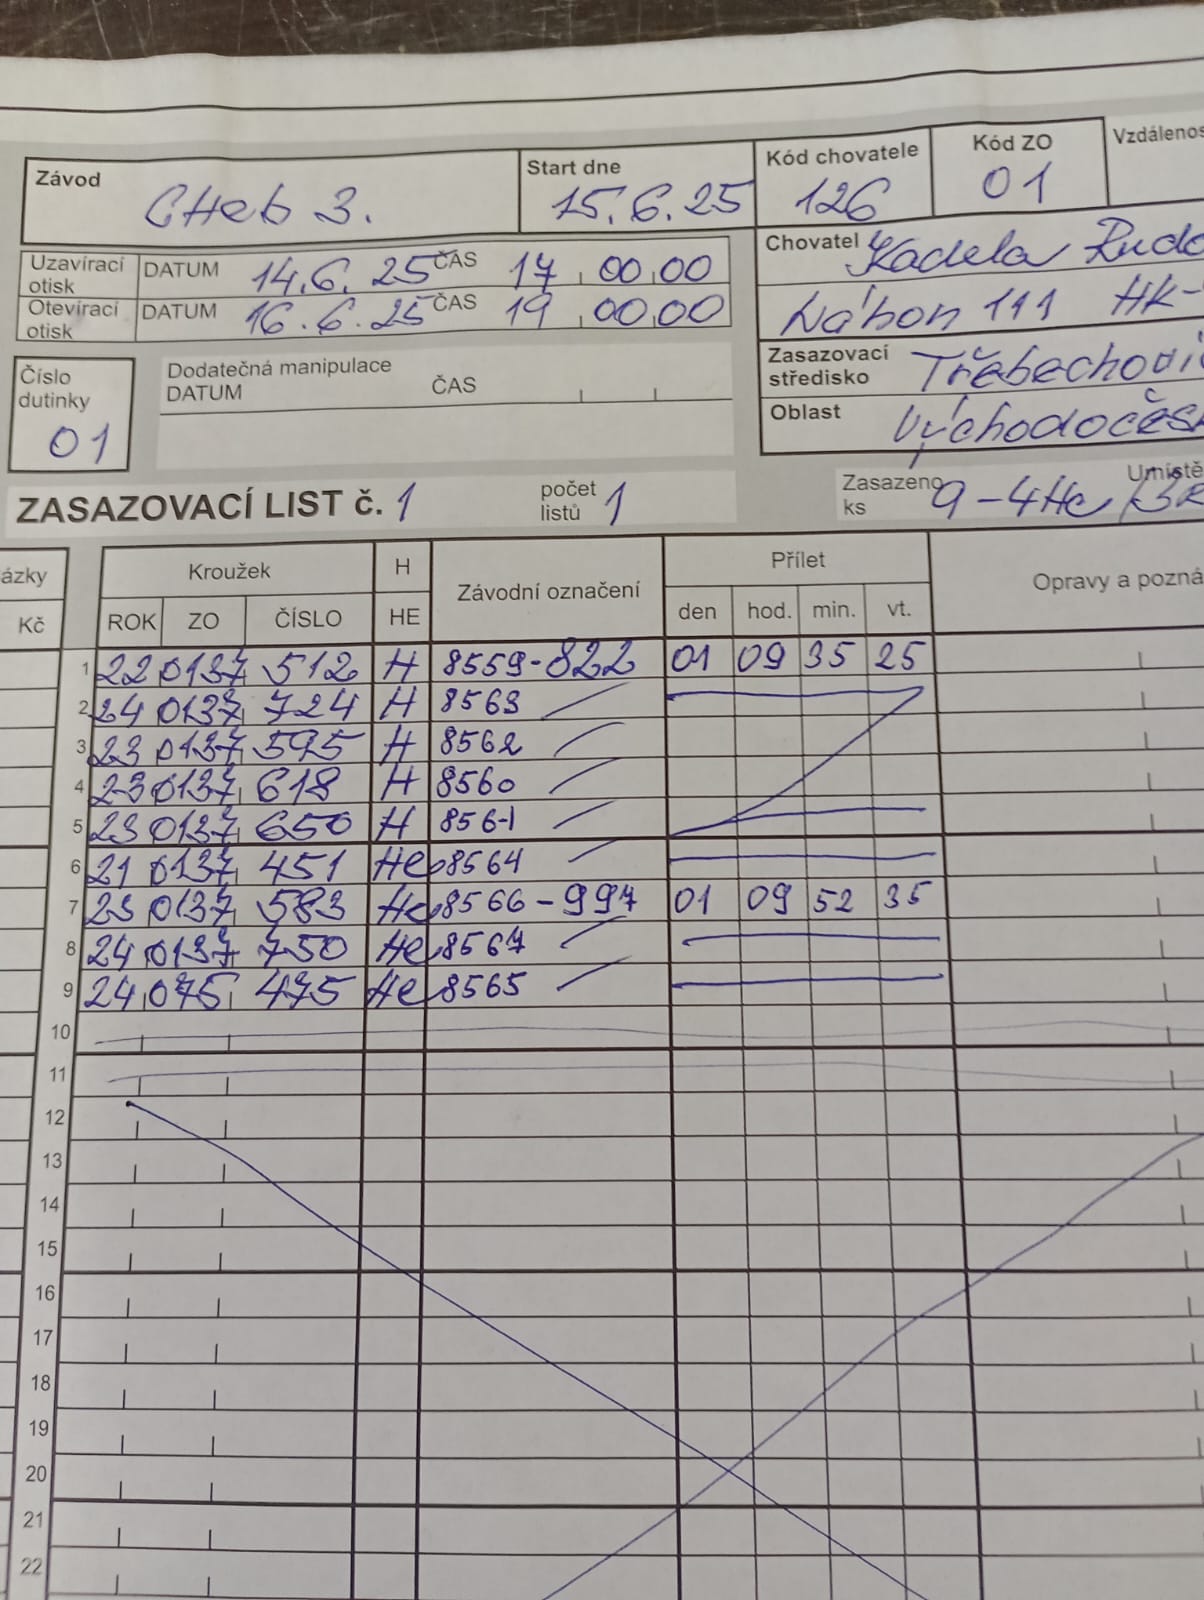 Závod CHeb 3. Start dne 15.6.25 Kód chovatele 126 Kód ZO 01
Uzavírací otisk DATUM 14.6.25 ČAS 17 00 00
Otevírací otisk DATUM 16.6.25 ČAS 19 00 00
Chovatel Kadela
Náhon 111 HK-
Číslo dutinky 01
Dodatečná manipulace
DATUM ČAS
Zasazovací středisko
Oblast
ZASAZOVACÍ LIST č. 1 počet listů 1 Zasazeno ks 9-4He
Kč
Kroužek H Závodní označení Přílet
ROK ZO ČÍSLO HE den hod. min. vt.
1 22 0137 512 H 8559-822 01 09 35 25
2 24 0137 724 H 8563
3 23 0137 595 H 8562
4 23 0137 618 H 8560
5 23 0137 650 H 8561
6 21 0137 451 He 8564
7 23 0137 583 He 8566-997 01 09 52 35
8 24 0137 750 He 8567
9 24 075 475 He 8565
10
11
12
13
14
15
16
17
18
19
20
21
22